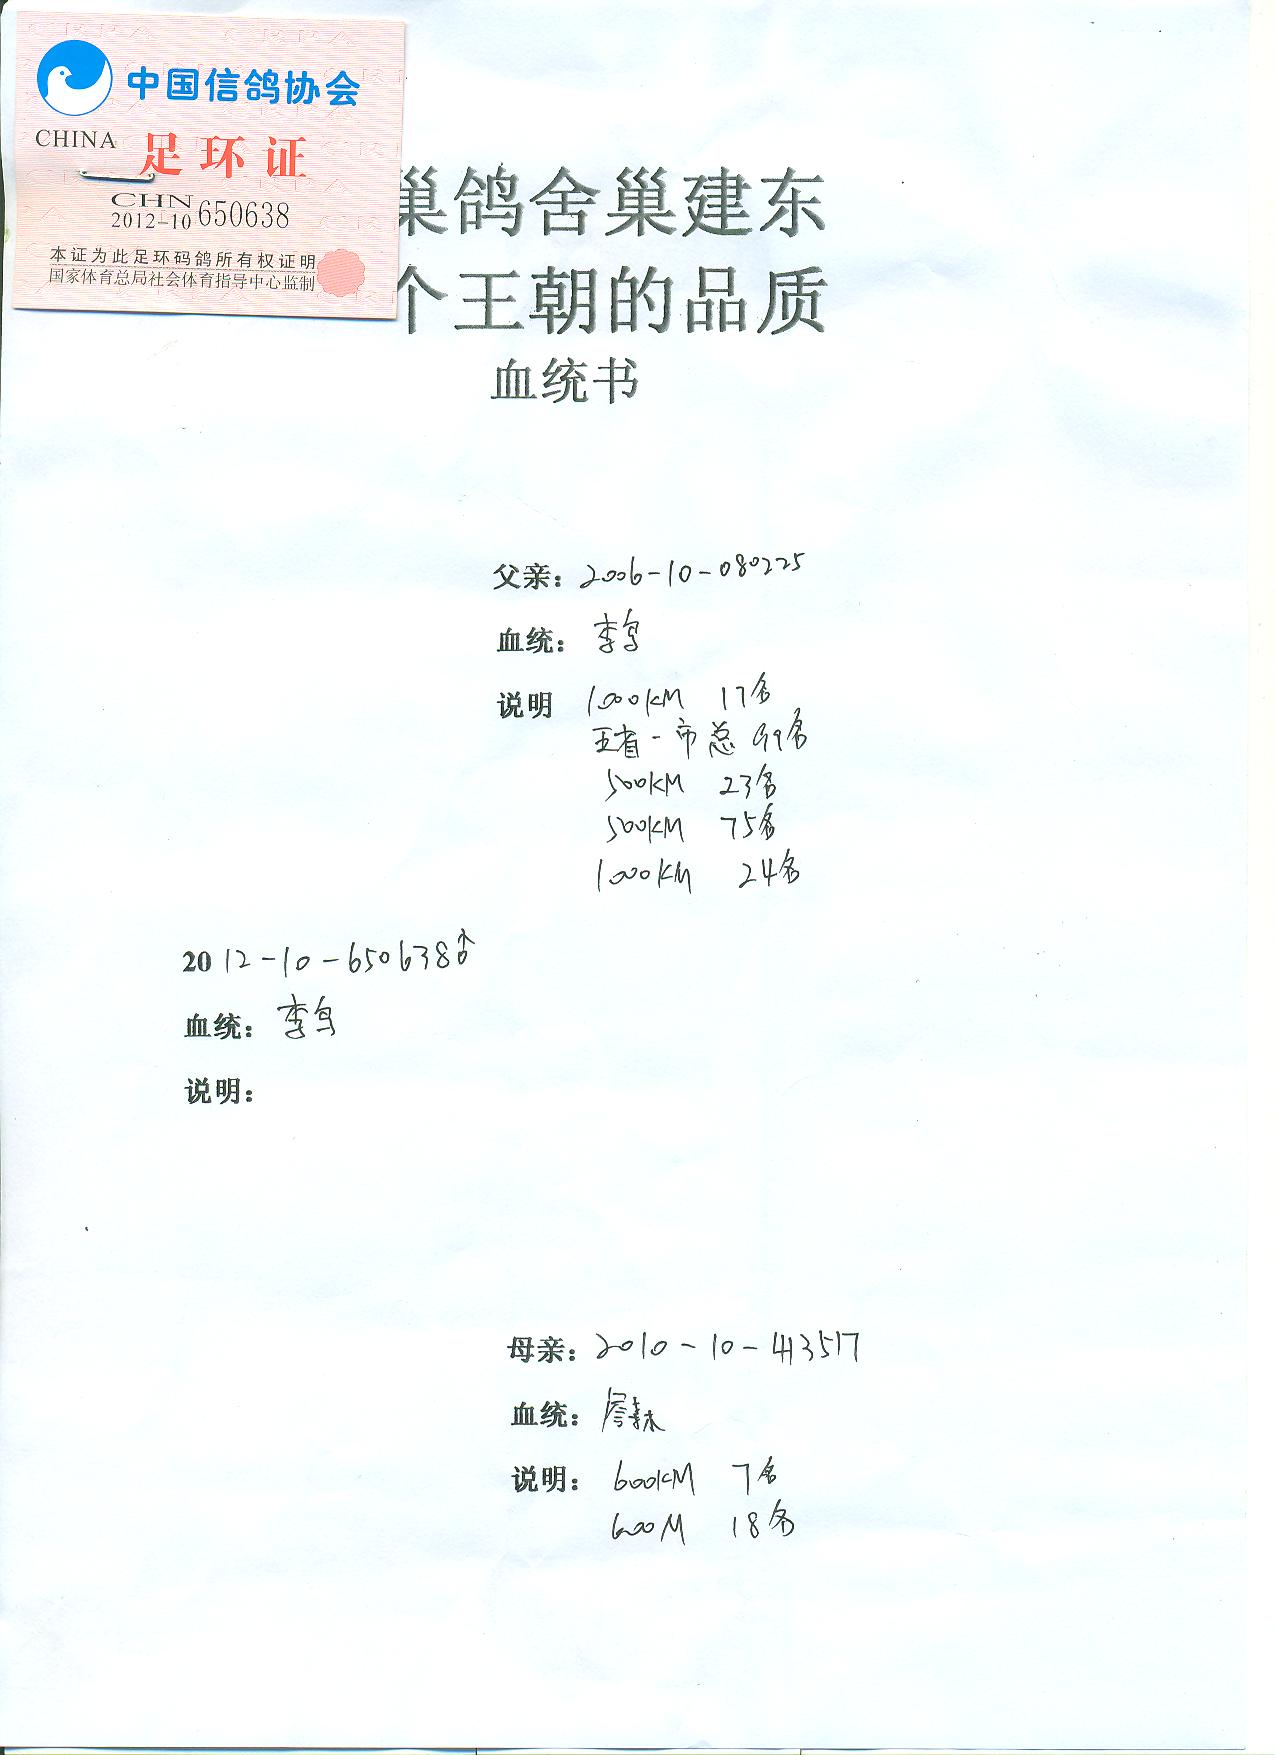 中国信鸽协会
CHINA 足环证
CHN
2012-10 650638
本证为此足环码鸽所有权证明
国家体育总局社会体育指导中心监制
巢鸽舍巢建东
个王朝的品质
血统书
父亲：2006-10-080225
血统：李鸟
说明 1000KM 17名
五省-市总 99名
500KM 23名
500KM 75名
1000KM 24名
2012-10-650638♂
血统：李鸟
说明：
母亲：2010-10-413517
血统：
说明：600KM 7名
600M 18名